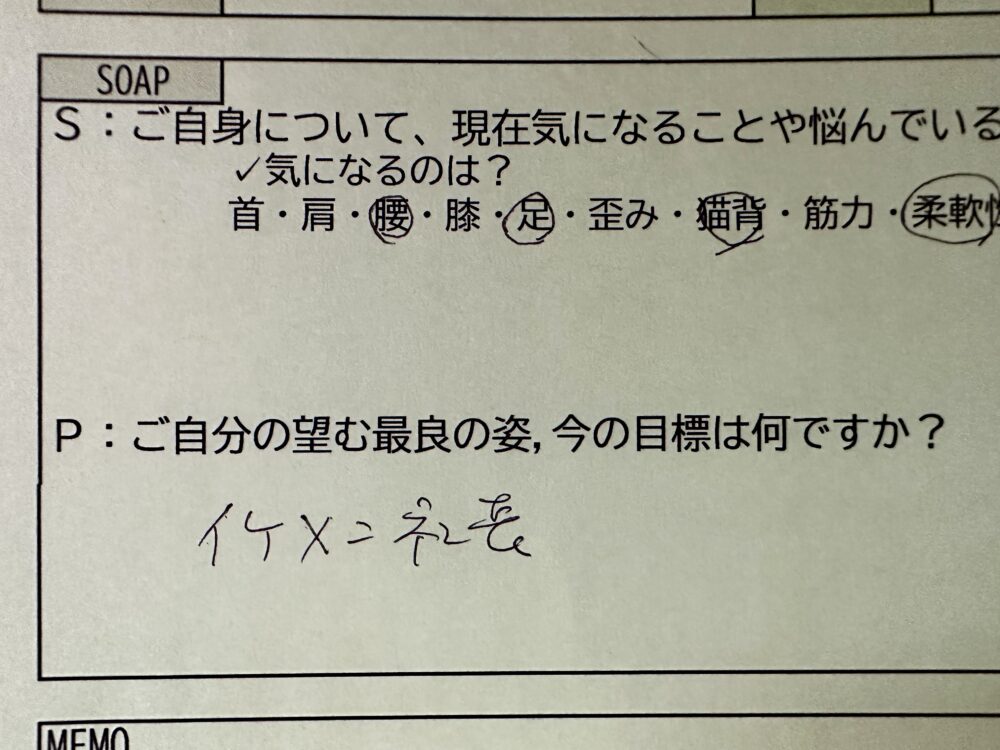 SOAP
S：ご自身について、現在気になることや悩んでいる
✓気になるのは？
首・肩・腰・膝・足・歪み・猫背・筋力・柔軟性
P：ご自分の望む最良の姿,今の目標は何ですか？
イケメン社長
MEMO